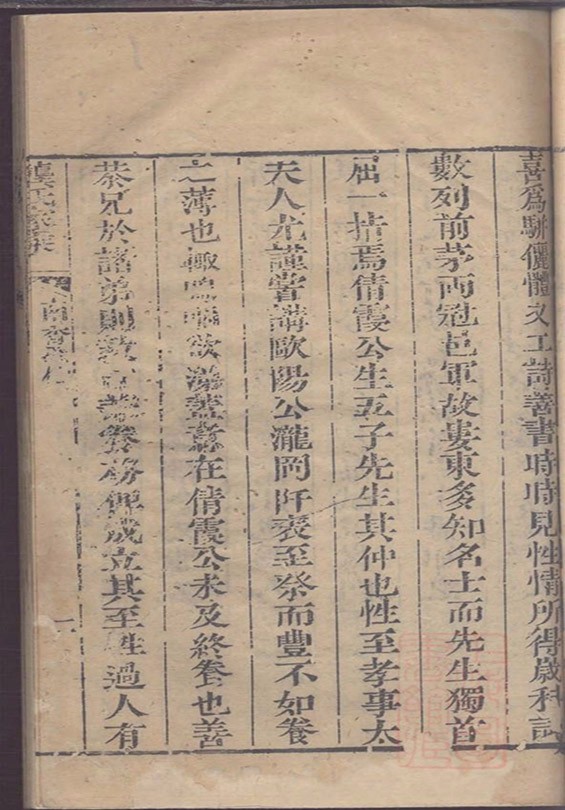 喜為駢儷體文工詩善書時時見性情所得歲科試
數列前茅兩冠邑軍故婁東多知名士而先生獨首
屈一指焉倩霞公生五子先生其仲也性至孝事太
夫人尤謹嘗讀歐陽公瀧岡阡表至祭而豐不如養
之薄也輒嗚咽欲涕蓋意在倩霞公未及終養也善
恭兄於諸弟則教養務俾成立其至性過人有